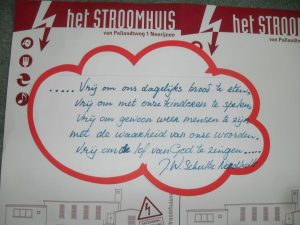 het STROOMHUIS
van Pallandtweg 1 Neerijnen
het STROOMHUIS
van Pallandtweg 1 Neerijnen
..... Vrij om ons dagelijks brood te eten,
Vrij om met onze kinderen te spelen,
Vrij om gewoon weer mensen te zijn
met de waarheid van onze woorden.
Vrij om de lof van God te zingen.....
J.W. Schulte